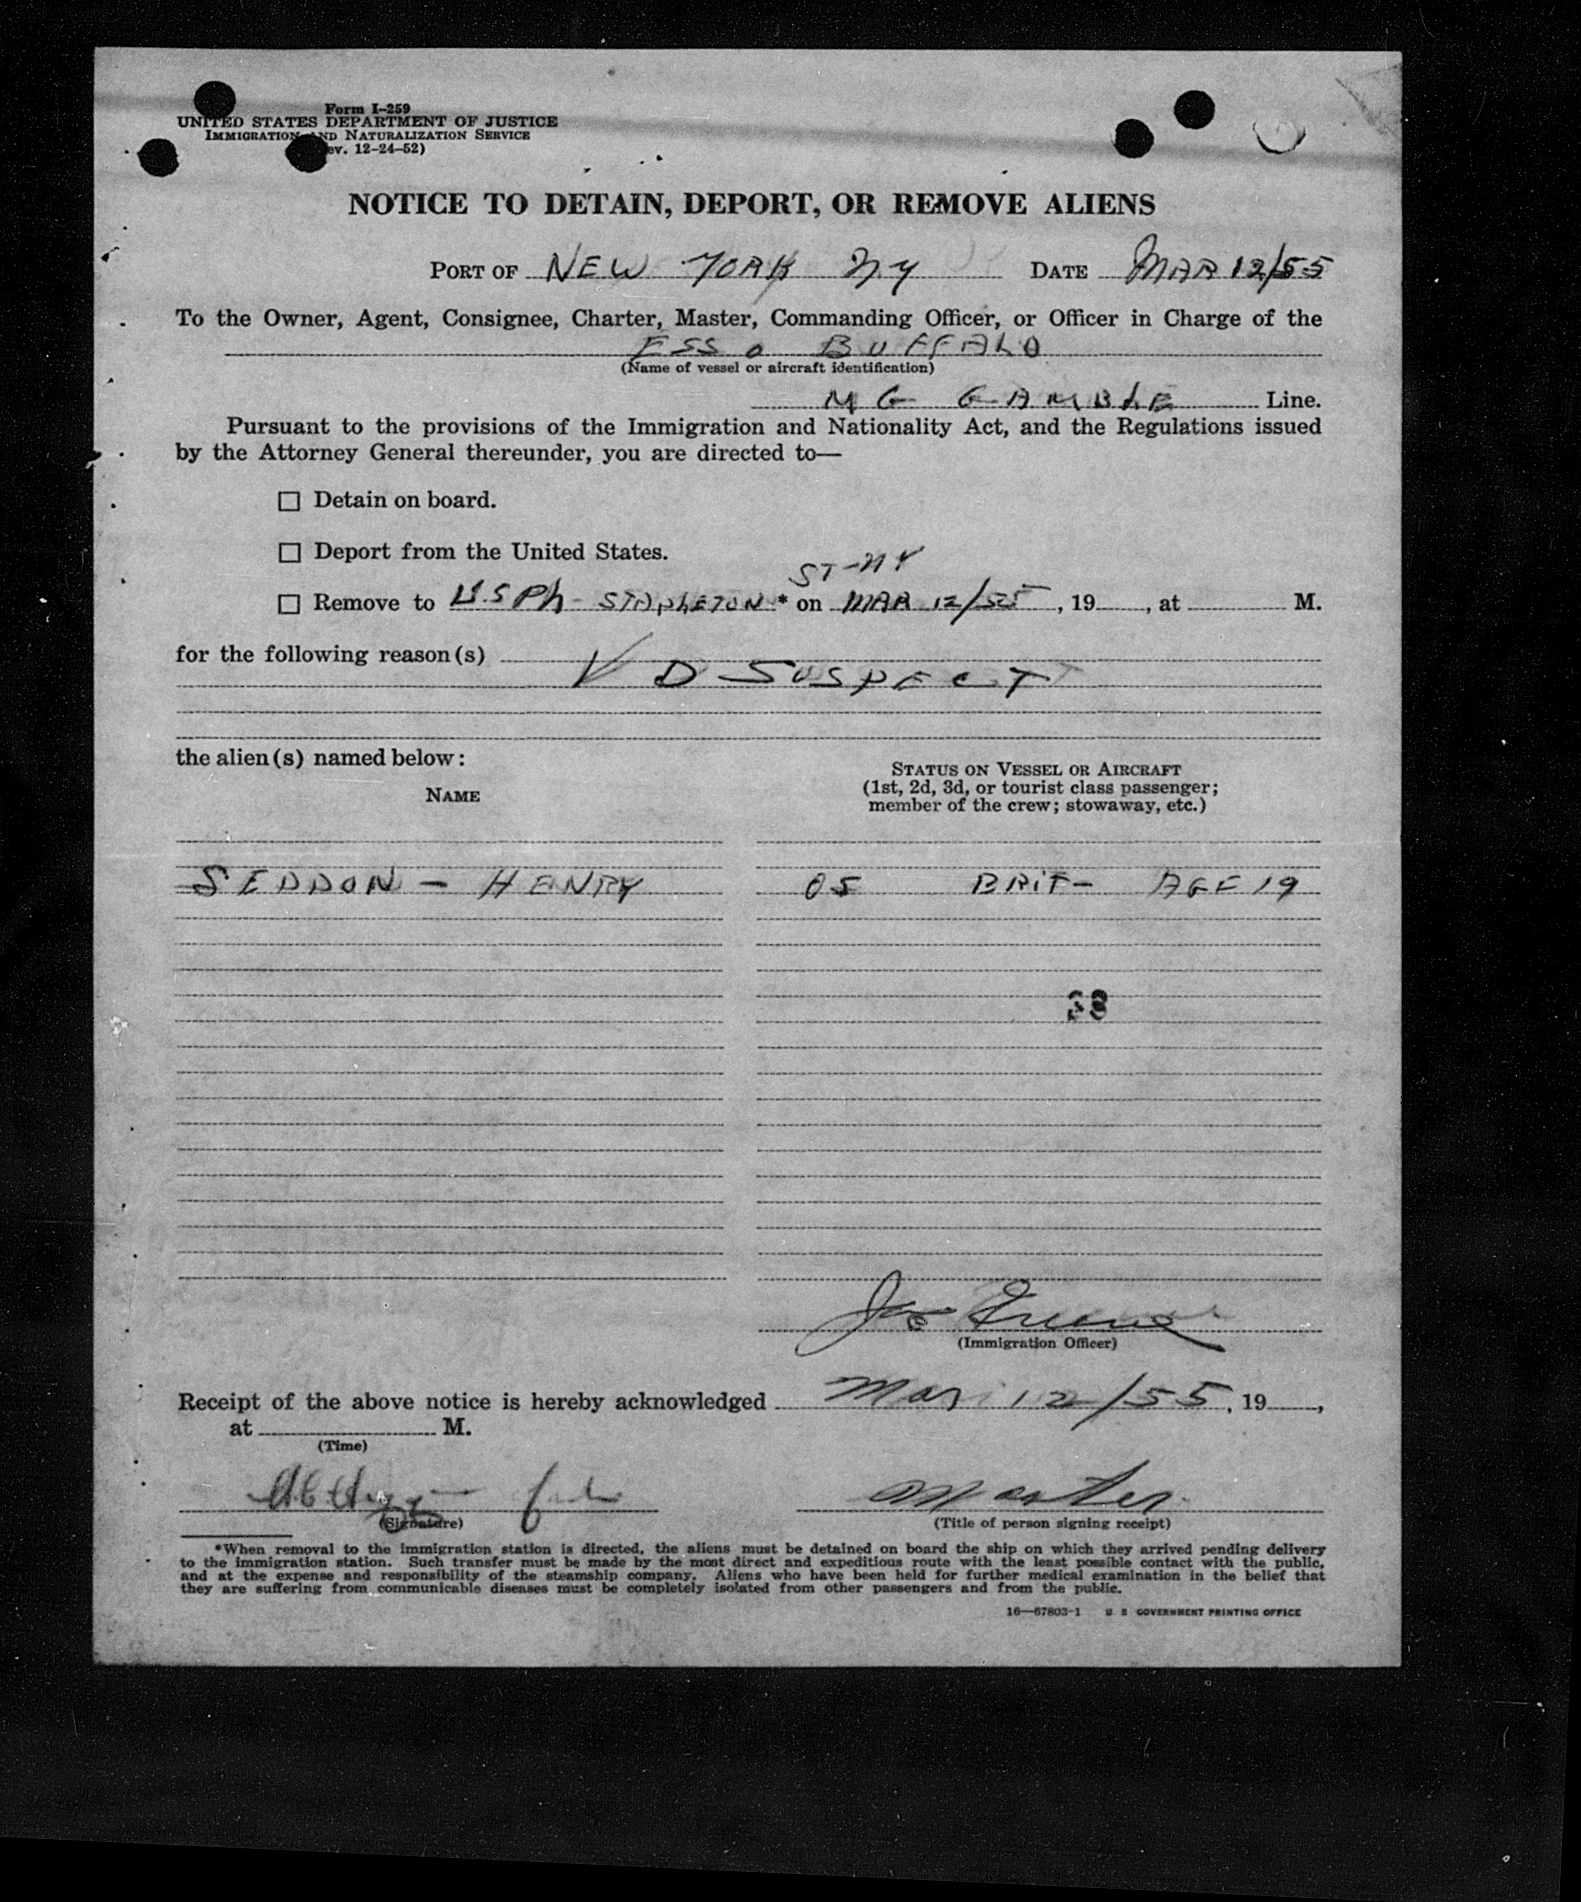 Form I-259
UNITED STATES DEPARTMENT OF JUSTICE
IMMIGRATION AND NATURALIZATION SERVICE
ev. 12-24-52)
NOTICE TO DETAIN, DEPORT, OR REMOVE ALIENS
PORT OF NEW YORK NY DATE MAR 12/55
To the Owner, Agent, Consignee, Charter, Master, Commanding Officer, or Officer in Charge of the
ESSO BUFFALO
(Name of vessel or aircraft identification)
MG GAMBLE Line.
Pursuant to the provisions of the Immigration and Nationality Act, and the Regulations issued
by the Attorney General thereunder, you are directed to—
☐ Detain on board.
☐ Deport from the United States.
ST-NY
☐ Remove to USPH - STAPLETON * on MAR 12/55, 19, at M.
for the following reason(s)
VD SUSPECT
the alien(s) named below:
NAME
STATUS ON VESSEL OR AIRCRAFT
(1st, 2d, 3d, or tourist class passenger;
member of the crew; stowaway, etc.)
SEDDON - HENRY OS BRIT- AGE 19
38
Jos Greene
(Immigration Officer)
Receipt of the above notice is hereby acknowledged Mar 12/55, 19,
at M.
(Time)
Master
(Signature) (Title of person signing receipt)
*When removal to the immigration station is directed, the aliens must be detained on board the ship on which they arrived pending delivery
to the immigration station. Such transfer must be made by the most direct and expeditious route with the least possible contact with the public,
and at the expense and responsibility of the steamship company. Aliens who have been held for further medical examination in the belief that
they are suffering from communicable diseases must be completely isolated from other passengers and from the public.
16—67803-1 U S GOVERNMENT PRINTING OFFICE